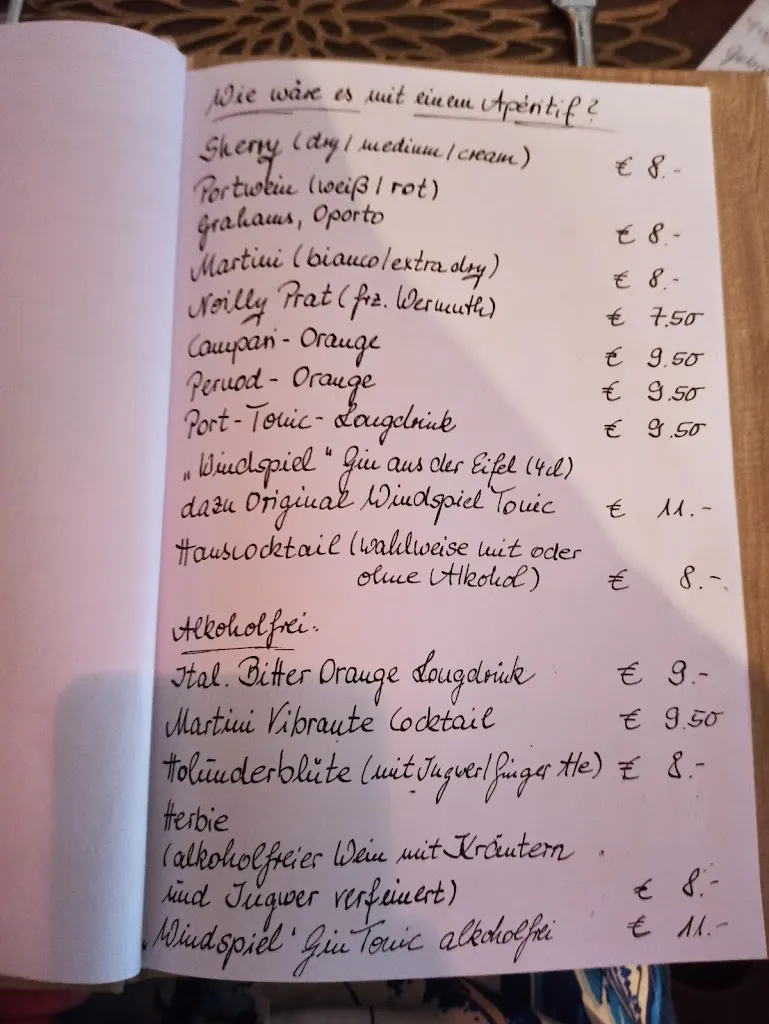 Wie wäre es mit einem Apéritif?
Sherry (dry / medium / cream) € 8.-
Portwein (weiß / rot)
Grahams, Oporto € 8.-
Martini (bianco / extra dry) € 8.-
Noilly Prat (frz. Wermuth) € 7.50
Campari - Orange € 9.50
Pernod - Orange € 9.50
Port - Tonic - Longdrink € 9.50
„Windspiel“ Gin aus der Eifel (4cl)
dazu Original Windspiel Tonic € 11.-
Hauscocktail (wahlweise mit oder
ohne Alkohol) € 8.-
Alkoholfrei:
Ital. Bitter Orange Longdrink € 9.-
Martini Vibrante Cocktail € 9.50
Holunderblüte (mit Ingwer/Ginger Ale) € 8.-
Herbie
(alkoholfreier Wein mit Kräutern
und Ingwer verfeinert) € 8.-
„Windspiel“ Gin Tonic alkoholfrei € 11.-